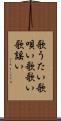 歌うたい歌
唄い歌歌い
歌謡い